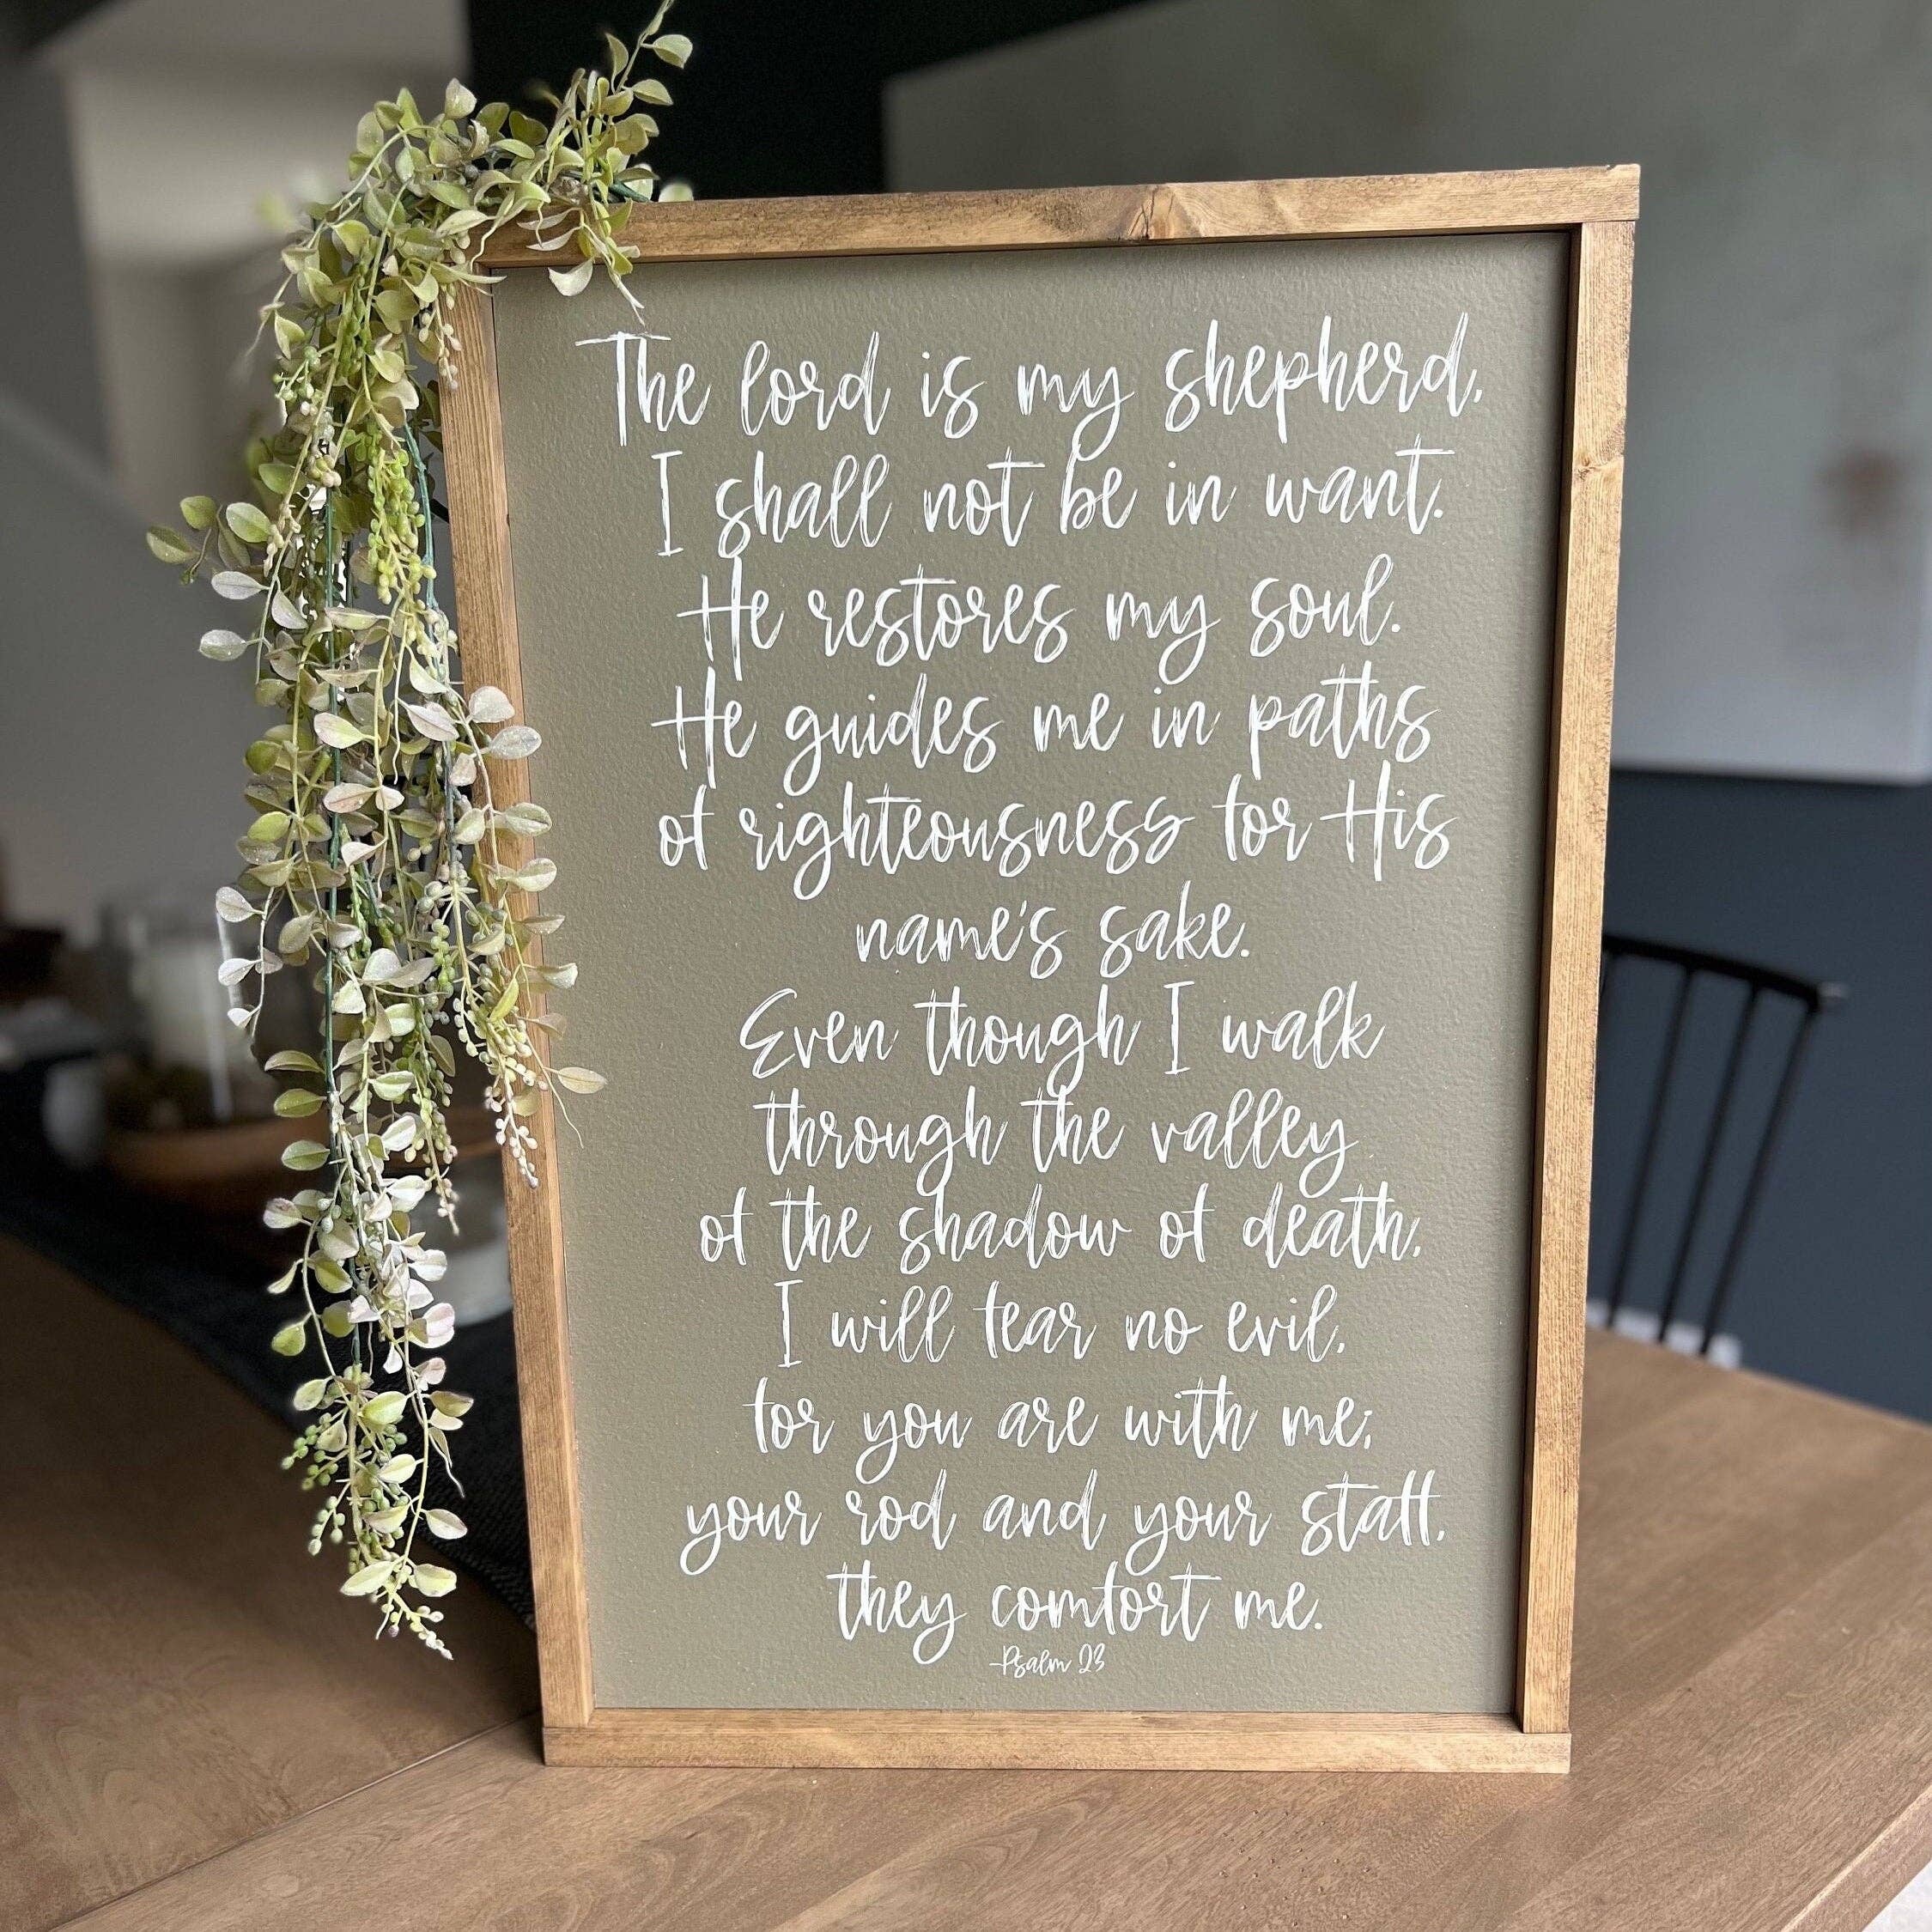 The lord is my shepherd,
I shall not be in want.
He restores my soul.
He guides me in paths
of righteousness for His
name's sake.
Even though I walk
through the valley
of the shadow of death,
I will fear no evil,
for you are with me;
your rod and your staff,
they comfort me.
-Psalm 23